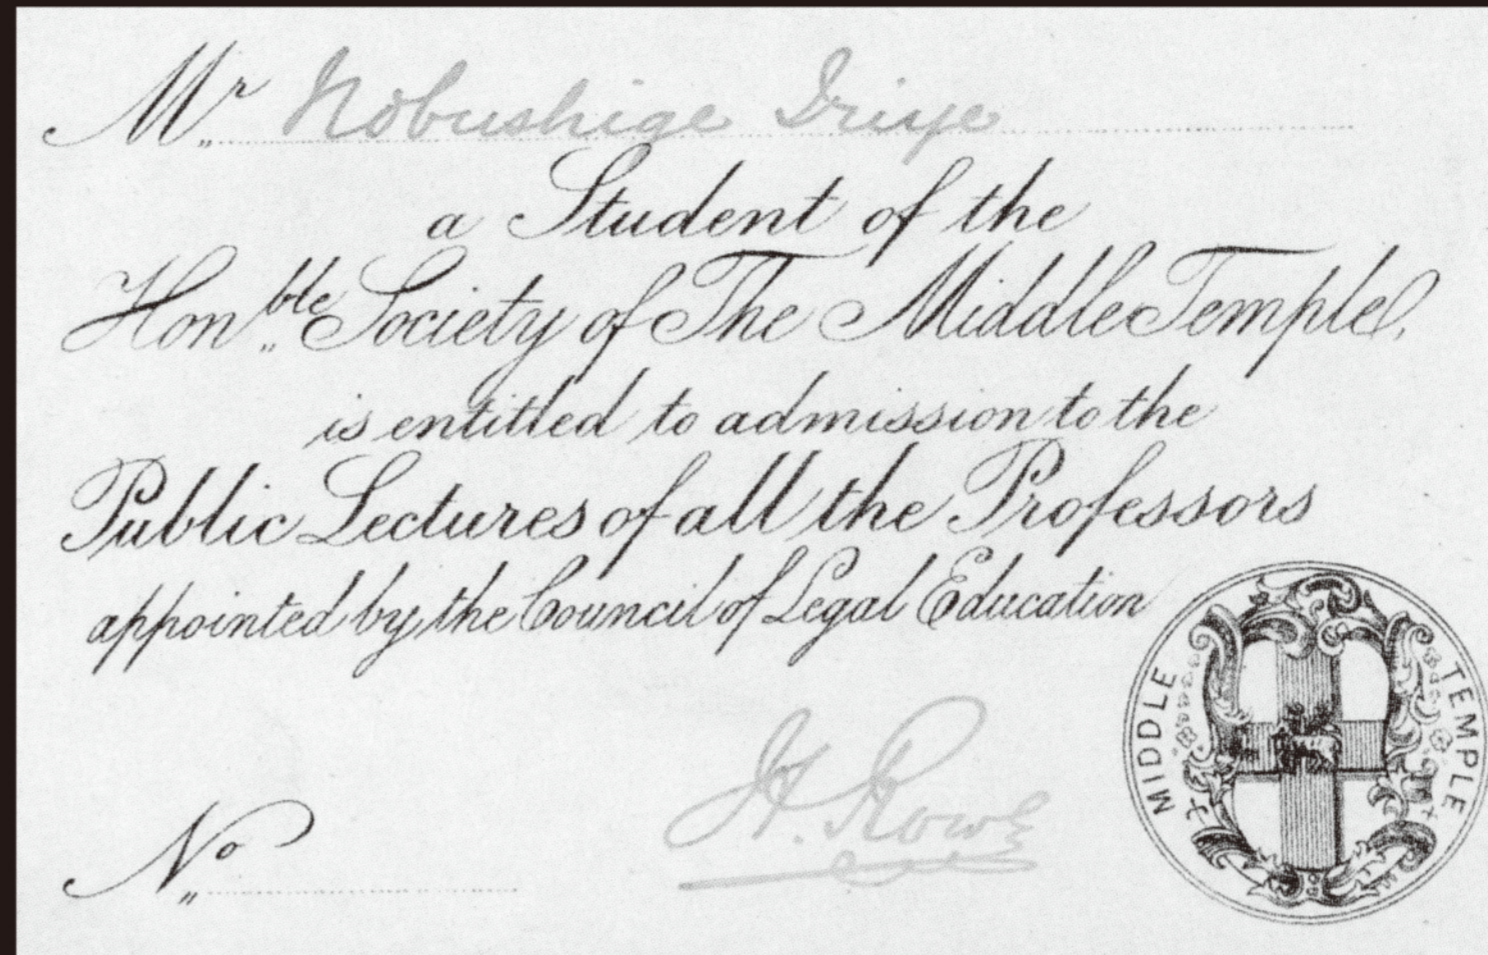 Mr Nobushige Iriye
a Student of the
Honble Society of The Middle Temple,
is entitled to admission to the
Public Lectures of all the Professors
appointed by the Council of Legal Education
MIDDLE TEMPLE
No